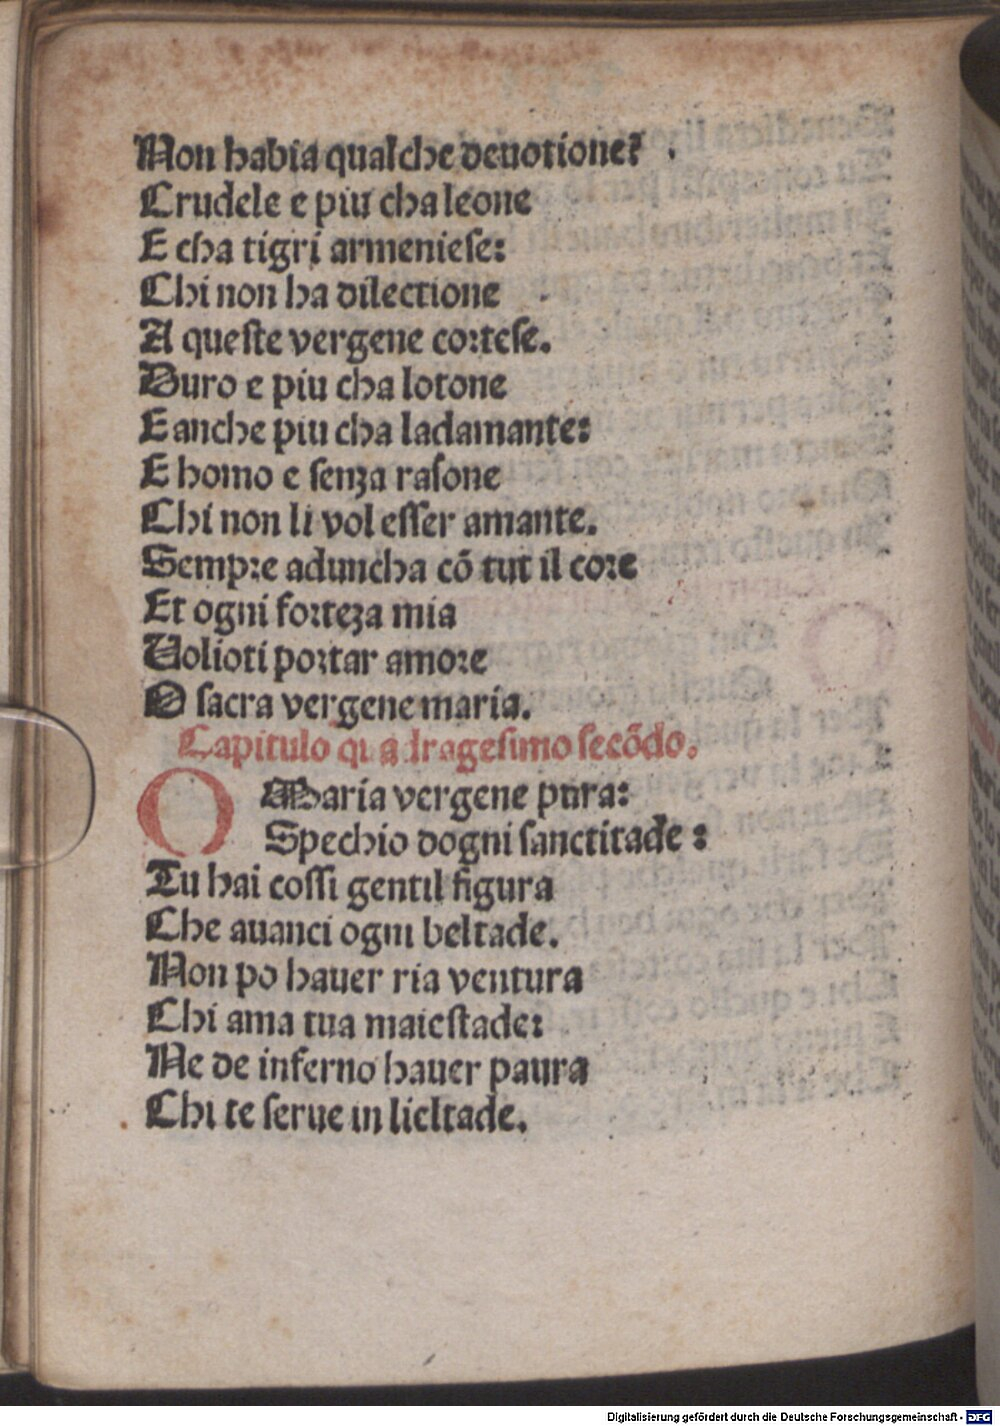 Non habia qualche deuotione?
Crudele e piu cha leone
E cha tigri armeniese:
Chi non ha dilectione
A queste vergene cortese.
Duro e piu cha lotone
E anche piu cha ladamante:
E homo e senza rasone
Chi non li vol esser amante.
Sempre aduncha cō tut il core
Et ogni forteza mia
Uolioti portar amore
O sacra vergene maria.
Capitulo quadragesimo secōdo.
O Maria vergene pura:
Spechio dogni sanctitade:
Tu hai cossi gentil figura
Che auanci ogni beltade.
Non po hauer ria ventura
Chi ama tua maiestade:
Ne de inferno hauer paura
Chi te serue in lieltade.
Digitalisierung gefördert durch die Deutsche Forschungsgemeinschaft - DFG